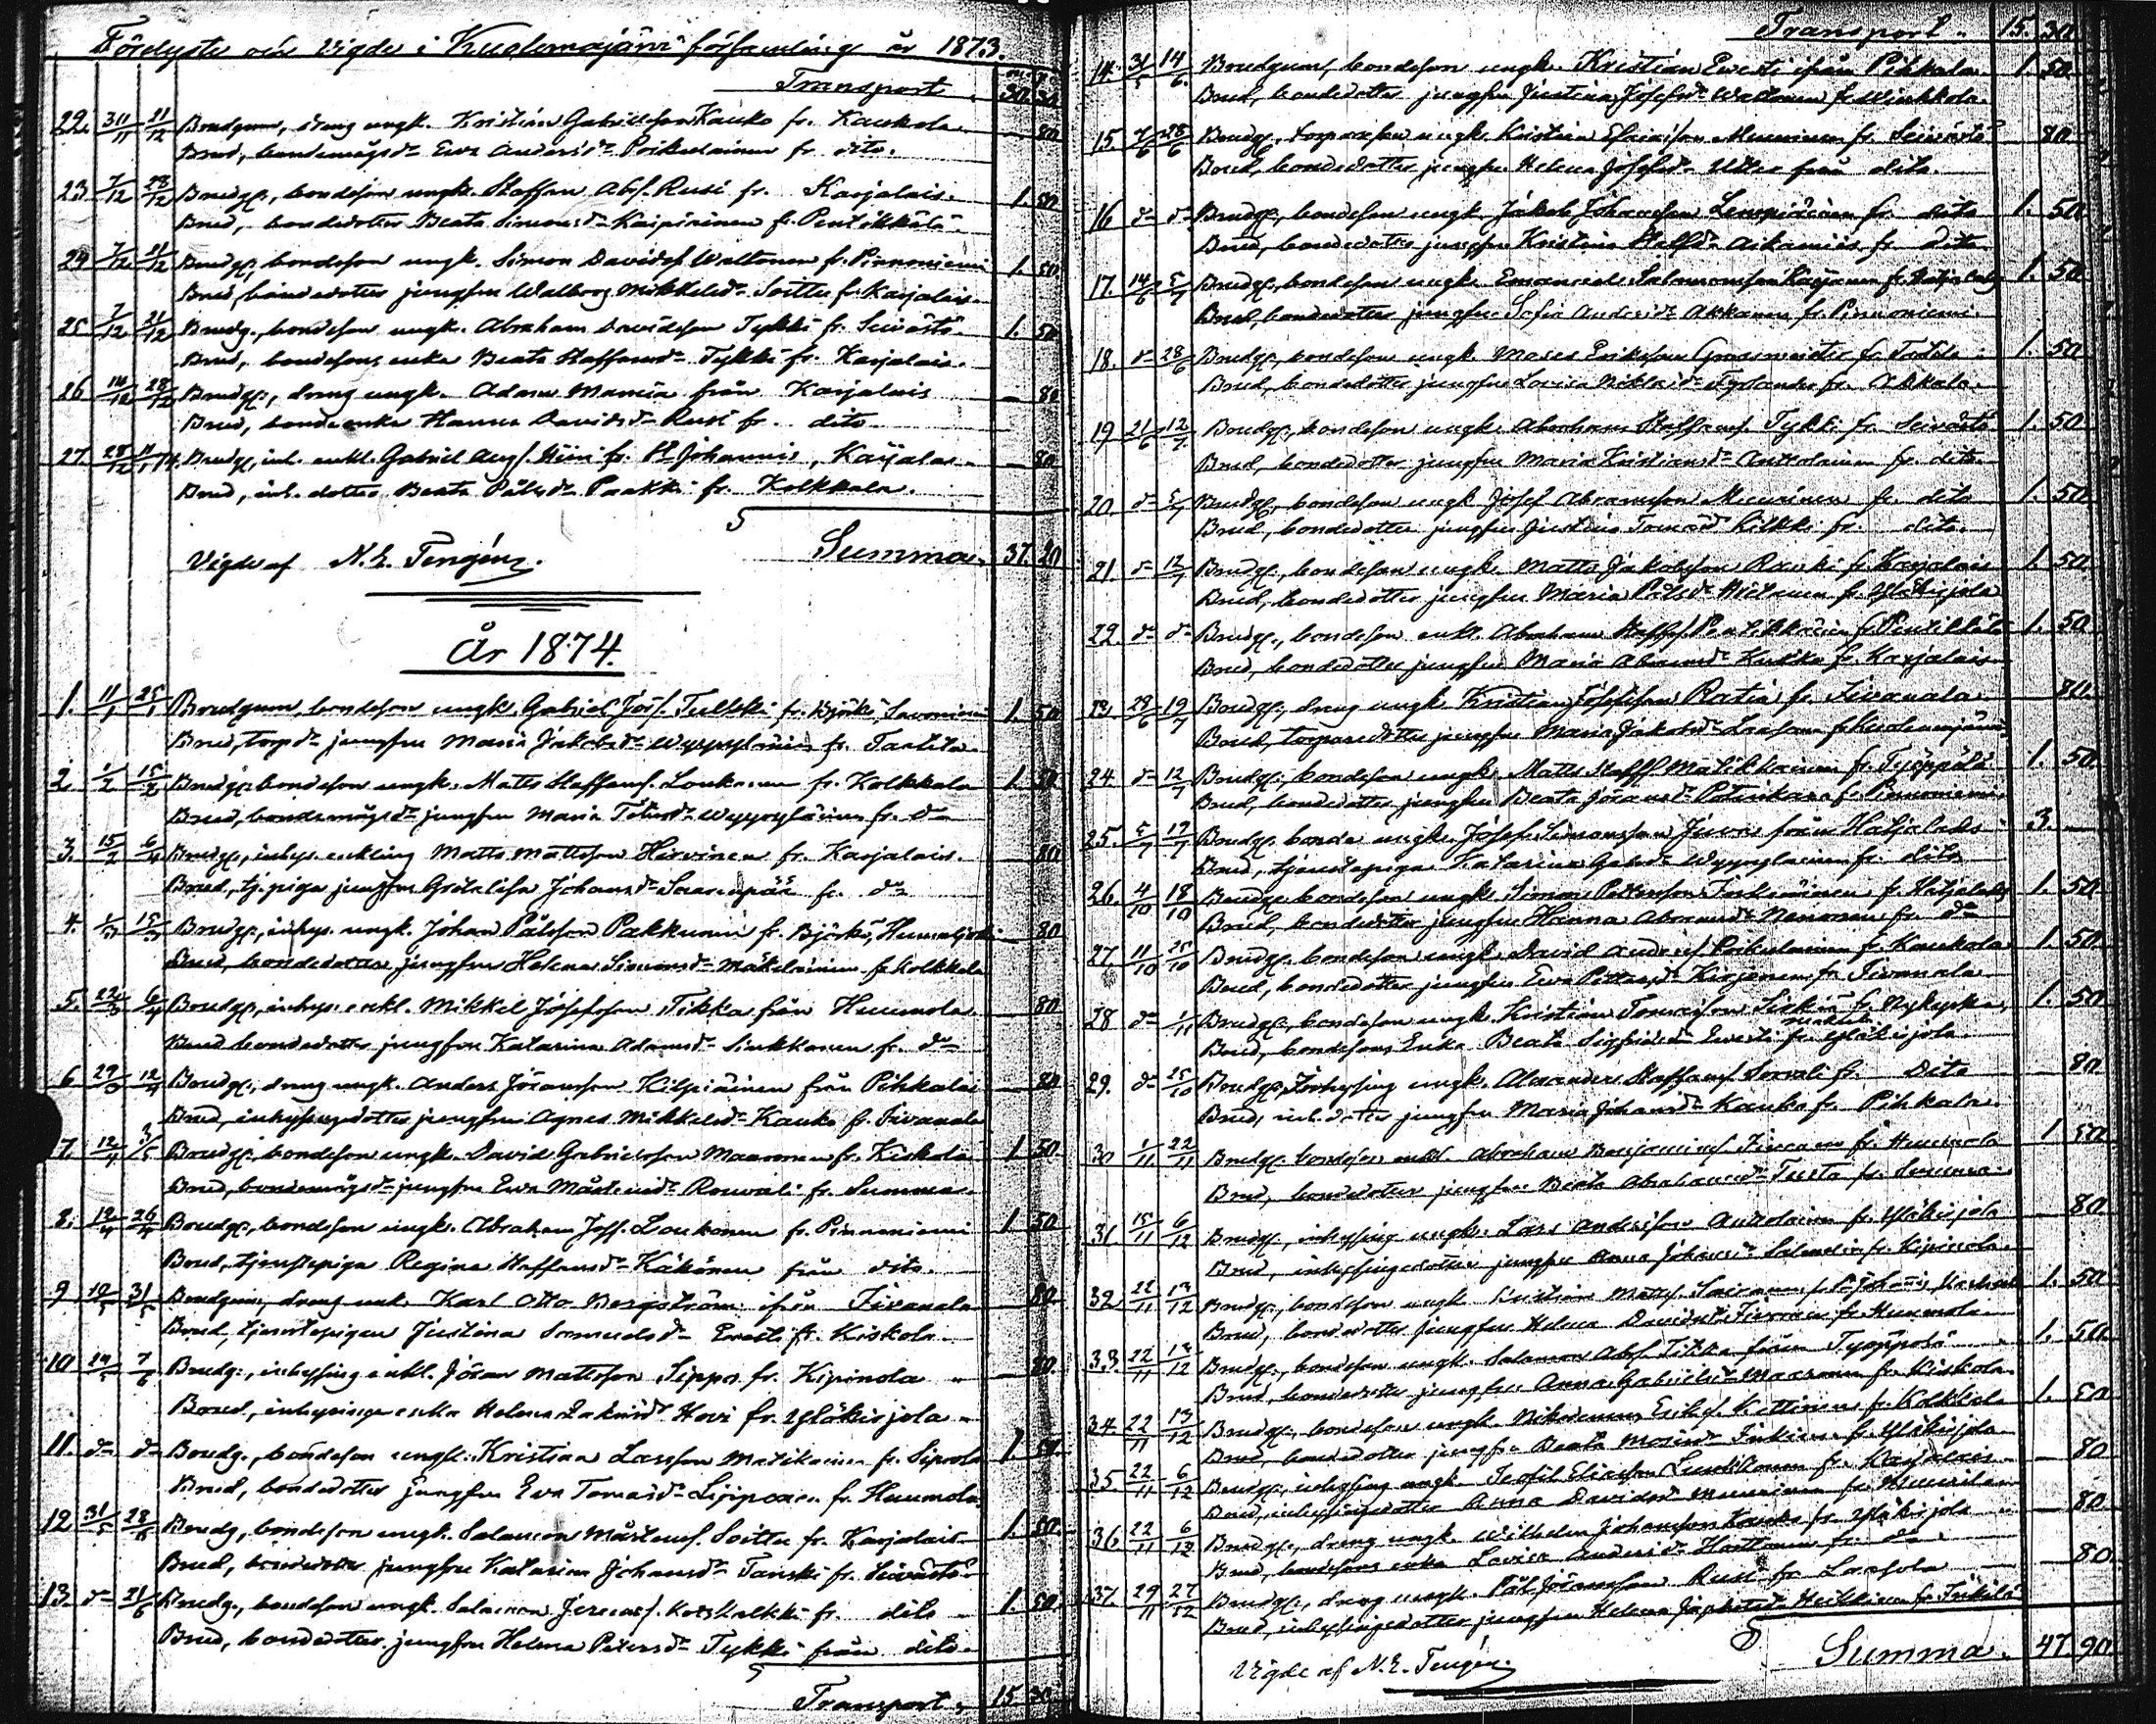 Förelyste och Vigde i Kuolemajärvi församling år 1873.
Transport 30. 30
22. 30/11 21/12 Brudgum, dreng ungk. Kristian Gabrielsson Kauko fr. Kaukola — 80
Brud, bondemågs dr Eva Andersdr Poikelainen fr. dito.
23 7/12 28/12 Brudg., bondeson ungk. Staffan Abs. Rusi fr. Karjalais. 1. 50
Brud, bondedotter Beata Simonsdr Kaipiainen fr. Pentikkälä
24 7/12 21/12 Brudg., bondeson ungk. Simon Davids. Waltonen fr. Pinnoniemi 1. 50
Brud, bondedotter jungfru Walborg Mikkelsdr Soittu fr. Karjalais.
25 7/12 21/12 Brudg., bondeson ungk. Abraham Davidsson Tykki fr. Seivästö. 1. 50
Brud, bondesons enka Beata Staffansdr Tykki fr. Karjalais.
26 14/12 28/12 Brudg., dreng ungk. Adam Mansia från Karjalais — 80
Brud, bondeenka Hanna Davidsdr Rusi fr. dito
27. 28/12 Brudg., inh. enkl. Gabriel Aug. Hiiri fr. St Johannis, — 80
Brud, inh. dotter Beata Pålsdr Paakki fr. Kolkkala.
Vigde af N. E. Tengén. Summa 37. 20
År 1874.
1. 11/1 25/1 Brudgum, bondeson ungk. Gabriel Jös. Tulkki fr. Björkö, 1. 50
Brud, torp dr jungfru Maria Jakobsdr Wyyryläinen fr. Taatila
2. 1/2 15/2 Brudg., bondeson ungk. Matts Staffans. Loukonen fr. Kolkkala 1. 50
Brud, bondemågs dr jungfru Maria Wyyryläinen fr. do
3. 15/2 6/4 Brudg., inhys. enkling Matts Mattsson Hirvinen fr. Karjalais. 80
Brud, tj. piga jungfru Greta Lisa Johansdr Saarenpää fr. do
4. 15/3 Brudg., inhys. ungk. Johan Pålsson Pakkunin fr. Björkö, 80
Brud, bondedotter jungfru Helena Simonsdr Mäkeläinen fr. Kolkkala
5. 22/3 6/4 Brudg., inhys. enkl. Mikkel Josefsson Tikka från Huumola 80
Brud bondedotter jungfru Katarina Adamsdr Sinkkonen fr. do
6 29/3 12/4 Brudg., dreng ungk. Anders Göransson Kilpiäinen från Pihkala 80
Brud, inhysingedotter jungfru Agnes Mikkelsdr Kauko fr. Fivanala
7. 12/4 3/5 Brudg., bondeson ungk. David Gabrielsson Maaronen fr. Kiskola 1. 50
Brud, bondemågs dr jungfru Eva Mårtensdr Rouvali fr. Summa.
8. 12/4 26/4 Brudg., bondeson ungk. Abraham Jos. Loukonen fr. Pinnoniemi 1. 50
Brud, tjenstepiga Regina Staffansdr Käkönen från dito.
9 31/5 Brudgum, dreng unk. Karl Otto Bergström ifrån Fivanala 80
Brud, tjenstepigan Justina Samuelsdr Evästi fr. Kiskola
10 7/6 Brudg., inhysing enkl. Jöran Mattsson Sippo fr. Kipinola 80.
Brud, inhysinge enka Helena Hovi fr. Yläkirjola
11. do do Brudg., bondeson ungk. Kristian Larsson Matikainen fr. Siprola 1. 50
Brud, bondedotter jungfru Eva Tomasdr fr. Huumola
12 31/5 28/6 Brudg., bondeson ungk. Salamon Mårtens. Soittu fr. Karjalais 1. 50
Brud, bondedotter jungfru Katarina Johansdr Tanski fr. Seivästö
13. do 21/6 Brudg., bondeson ungk. Salamon fr. dito 1. 50
Brud, bondedotter jungfru Helena Petersdr Tykki från dito
Transport, 15 30
Transport 15. 30
14. 31/5 14/6 Brudgum, bondeson ungk. Kristian Evästi ifrån Pihkala 1. 50
Brud, bondedotter jungfru Justina Josefsdr Waltonen fr.
15 7/6 28/6 Brudg., torpareson ungk. Kristian Muurinen fr. Seivästö 80
Brud, bondedotter jungfru Helena Josefsdr från dito.
16 do do Brudg., bondeson ungk. Jakob Johansson Lempiäinen fr. dito 1. 50
Brud, bondedotter jungfru Kristina Staffsdr fr. dito
17. 14/6 5/7 Brudg., bondeson ungk. Emanuel Salamonsson fr. Hatjalaks 1. 50
Brud, bondedotter jungfru Sofia Andersdr Akkanen fr. Pinnoniemi.
18. do 28/6 Brudg., bondeson ungk. Moses Eriksson fr. Taatila 1. 50
Brud, bondedotter jungfru Lovisa fr. Akkala.
19 21/6 12/7 Brudg., bondeson ungk. Abraham Staffans. Tykki fr. Seivästö 1. 50
Brud, bondedotter jungfru Maria Kristiansdr Anttolainen fr. dito.
20. do 5/7 Brudg., bondeson ungk. Josef Abramsson Muurinen fr. dito 1. 50
Brud, bondedotter jungfru Justina Tomasdr fr. dito.
21. do 12/7 Brudg., bondeson ungk. Matts Jakobsson fr. Karjalais 1. 50
Brud, bondedotter jungfru Maria Pålsdr fr. Yläkirjola
22. do do Brudg., bondeson enkl. Abraham Staffs. fr. Pentikkälä 1. 50
Brud, bondedotter jungfru Maria fr. Karjalais
23. 28/6 19/7 Brudg., dreng ungk. Kristian Josefsson Ratia fr. Fivanala 80.
Brud, torparedotter jungfru Maria Jakobsdr fr. Kuolemajärvi
24. do 12/7 Brudg., bondeson ungk. Matts Staffs. Matikkainen fr. Tyoppölä 1. 50
Brud, bondedotter jungfru Beata Jöransdr fr. Pinnoniemi
25. 5/7 19/7 Brudg. bonde ungk. Josef Simonsson från Hatjalaks 3. —
Brud, tjenstepiga Katarina Wyyryläinen fr. dito
26. 4/10 18/10 Brudg. bondeson ungk. Simon Pettersson fr. Hatjalaks 1. 50
Brud, bondedotter jungfru Hanna Nenonen fr. do
27 11/10 25/10 Brudg. bondeson ungk. David Anders. Poikelainen fr. Kaukola 1. 50
Brud, bondedotter jungfru Eva Pettersdr fr. Fivanala
28 do 1/11 Brudg., bondeson ungk. Kristian Tomasson fr. Nykyrka, 1. 50
Brud, bondesons Enka Beata Sigfridsdr Evästi fr. Yläkirjola.
29. do 25/10 Brudg. Inhysing ungk. Alexander Staffans. Sorvali fr. Dito 80
Brud, inh. dotter jungfru Maria Johansdr Kauko fr. Pihkala.
30 1/11 22/11 Brudg. bondeson enkl. Abraham fr. Huumola 1. 50
Brud, bondedotter jungfru Beata Abrahamsdr fr. Summa.
31 15/11 6/12 Brudg., inhysing ungk. Lars Andersson Anttolainen fr. Yläkirjola 80
Brud, inhysingedotter jungfru Anna Johansdr fr. Kipinola.
32 22/11 13/12 Brudg., bondeson ungk. Kristian fr. St Johannis, 1. 50
Brud, bondedotter jungfru Helena Davidsdr fr. Huumola
33. 22/11 13/12 Brudg., bondeson ungk. Salamon Abs. Tikka från Tyoppölä 1. 50
Brud, bondedotter jungfru Anna Gabrielsdr Maaronen fr. Kiskola
34. 22/11 13/12 Brudg., bondeson ungk. Nikodemus Eriks. fr. Kolkkala 1. 50
Brud, bondedotter jungfru Beata fr. Yläkirjola
35 22/11 6/12 Brudg., inhysing ungk. Teofil Eliasson fr. Karjalais 80
Brud, inhysingedotter Anna Davidsdr Muurinen fr.
36. 22/11 6/12 Brudg., dreng ungk. Wilhelm Johansson Kauko fr. Yläkirjola 80
Brud, bondesons enka Lovisa Andersdr fr. do
37. 29/11 27/12 Brudg., dreng ungk. Pål Jöransson Rusi fr. Laasola 80
Brud, inhysingedotter jungfru Helena Heikkinen fr.
Vigde af N. E. Tengén. Summa. 47. 90